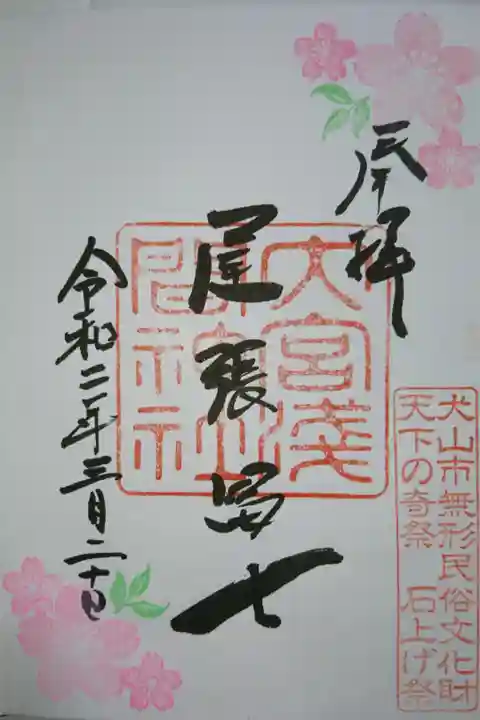 奉拝
犬山市無形民俗文化財
天下の奇祭 石上げ祭
大宮淺
間神社
尾張冨士
令和二年三月二十日